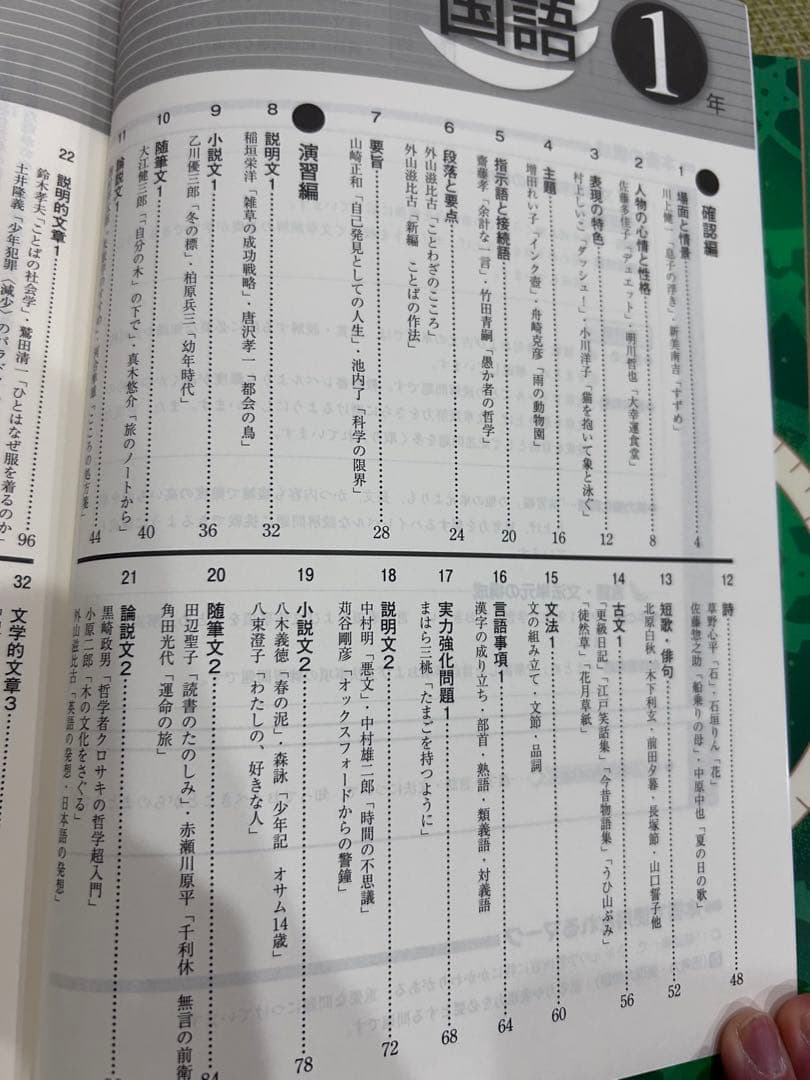 国語 1年
確認編
1 場面と情景 4
川上健一「息子の浮き」・新美南吉「すずめ」
2 人物の心情と性格 8
佐藤多佳子「デュエット」・明川哲也「大幸運食堂」
3 表現の特色 12
村上しいこ「ダッシュ!」・小川洋子「猫を抱いて象と泳ぐ」
4 主題 16
増田れい子「インク壺」・舟崎克彦「雨の動物園」
5 指示語と接続語 20
齋藤孝「余計な一言」・竹田青嗣「愚か者の哲学」
6 段落と要点 24
外山滋比古「ことわざのこころ」
外山滋比古「新編 ことばの作法」
7 要旨 28
山崎正和「自己発見としての人生」・池内了「科学の限界」
演習編
8 説明文1 32
稲垣栄洋「雑草の成功戦略」・唐沢孝一「都会の鳥」
9 小説文1 36
乙川優三郎「冬の標」・柏原兵三「幼年時代」
10 随筆文1 40
大江健三郎「「自分の木」の下で」・真木悠介「旅のノートから」
11 論説文1 44
「こころの処方箋」
12 詩 48
草野心平「石」・石垣りん「花」
佐藤惣之助「船乗りの母」・中原中也「夏の日の歌」
13 短歌・俳句 52
北原白秋・木下利玄・前田夕暮・長塚節・山口誓子他
14 古文1 56
「更級日記」「江戸笑話集」「今昔物語集」「うひ山ぶみ」
「徒然草」「花月草紙」
15 文法1 60
文の組み立て・文節・品詞
16 言語事項1 64
漢字の成り立ち・部首・熟語・類義語・対義語
17 実力強化問題1 68
まはら三桃「たまごを持つように」
18 説明文2 72
中村明「悪文」・中村雄二郎「時間の不思議」
苅谷剛彦「オックスフォードからの警鐘」
19 小説文2 78
八木義徳「春の泥」・森詠「少年記 オサム14歳」
八束澄子「わたしの、好きな人」
20 随筆文2 84
田辺聖子「読書のたのしみ」・赤瀬川原平「千利休 無言の前衛
角田光代「運命の旅」
21 論説文2
黒崎政男「哲学者クロサキの哲学超入門」
小原二郎「木の文化をさぐる」
外山滋比古「英語の発想・日本語の発想」
22 説明的文章1 96
鈴木孝夫「ことばの社会学」・鷲田清一「ひとはなぜ服を着るのか」
土井隆義「少年犯罪〈減少〉のパラド
32 文学的文章3